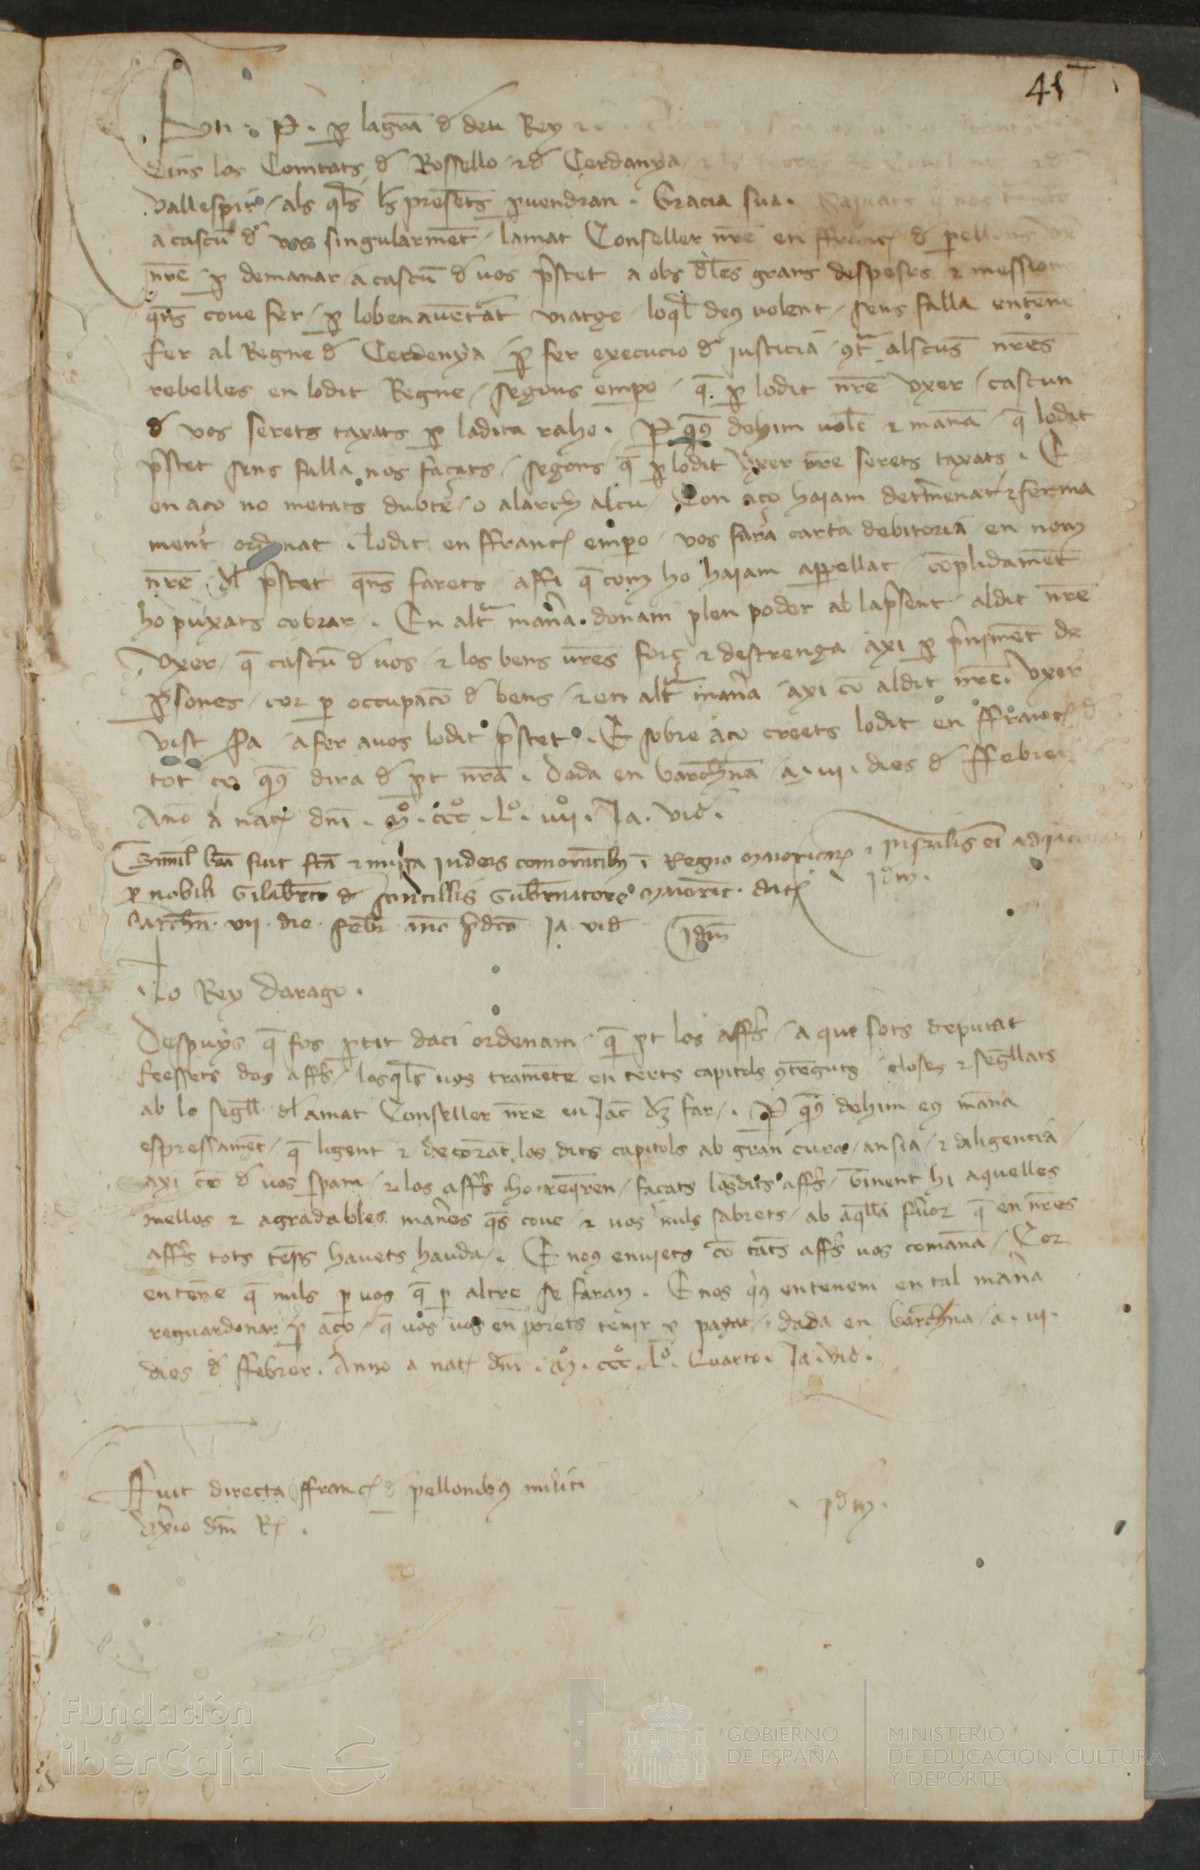 41
En P. per la gra de deu Rey
dins los Comtats de Rossello e de Cerdanya
Vallespir, als qls les presents pvendran. Gracia sua.
a cascu de vos singularment, lamat Conseller nre en ffranc de pellons
nre p demanar a cascu de vos prestet a obs dles grans despeses e messions
qns cove fer, p lo benaventat viatge, loql deus volent, sens falla entene
fer al Regne de Cerdenya, p fer execucio de justicia contra alscuns nres
rebelles en lodit Regne, segons empo, q p lodit nre Uxer, cascun
de vos serets taxats p ladita raho. P q dehim volē e mana q lodit
prestet sens falla nos façats, segons q p lodit Uxer nre serets taxats. E
en aço no metats dubte, o alarch alcu, Con aço haiam determenat e ferma
ment ordonat. lodit en ffranc empo, vos fara carta debitoria en nom
nre, dl prestet qns farets, affi q com ho haiam appellat, complidament
ho puxats cobrar. En altra manera donam plen poder ab la present aldit nre
Uxer, q cascu de vos, e los bens vres forç e destrenga, axi p preniment de
psones, cor p occupaco de bens, e en altra manera, axi co aldit nre Uxer
vist sia afer a vos lodit prestet. E sobre aço creets lodit en ffranc de
tot ço q dira de pt nra. Dada en barchna a. vii. dies de ffebrer
Ano a nat dni. M. CCC. L. iiii. Ja. vid.
Similis lra fuit fca e missa judeis comorantibus i Regno maioricar e insulis ei adjacent
p nobili Gilabto de scintillis Gubernatore maioric. dat Idm.
barchn. vii. die febr. ano predco Ja. vid Idm
Lo Rey Darago.
Despuys q fos ptit daci ordenam, q pt los affrs, a que sots deputat
feessets dos affrs, losqls vos trametē en certs capitols contenguts closes e segellats
ab lo segell dl amat Conseller nre en Jac dez far. P q dehim e mana
espressament, q ligent e decorat los dits capitols ab gran cura, ansia, e diligencia
axi co de vos speram, e los affrs ho reqren, façats los dits affrs, tinent hi aquelles
mellos e agradables maneres qs cove e vos mils sabrets, ab aqlla favor q en nres
affrs tots temps havets hauda. E nous enujets co tants affrs vos comana, Cor
entene q mils p vos q p altre se faran. E nos entenem en tal manera
reguardonar p aço, q vos vos en porets tenir p pagat. dada en barchna, a. vii.
dies de ffebrer. Anno a nat dni. M. CCC. L. Quarto. Ja. vid.
Fuit directa ffranc de pellonibus militi
Uxerio dni R. Idm.
Fundación
iberCaja
GOBIERNO
DE ESPAÑA
MINISTERIO
DE EDUCACIÓN, CULTURA
Y DEPORTE